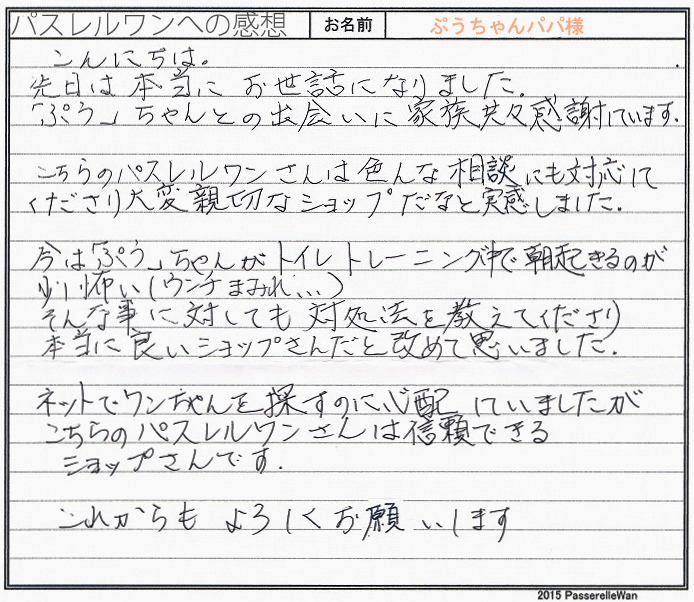 パスレルワンへの感想 お名前 ぷうちゃんパパ様
こんにちは。
先日は本当に お世話になりました。
「ぷう」ちゃんとの出会いに 家族共々感謝しています。
こちらのパスレルワンさんは色んな相談にも対応して
くださり大変親切なショップだなと実感しました。
今は「ぷう」ちゃんがトイレトレーニング中で朝起きるのが
少し怖い(ウンチまみれ...)
そんな事に対しても対処法を教えてくださり
本当に良いショップさんだと改めて思いました。
ネットでワンちゃんを探すのに心配していましたが
こちらのパスレルワンさんは信頼できる
ショップさんです。
これからも よろしくお願いします
2015 PasserelleWan